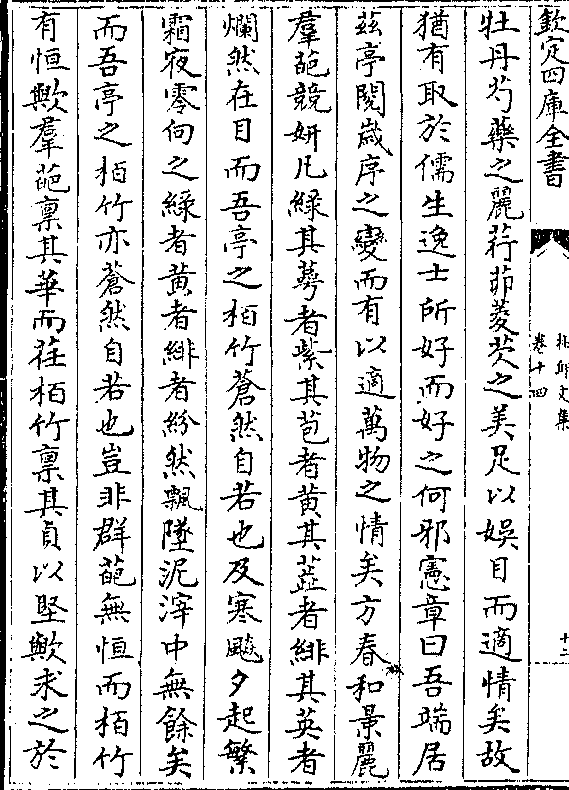 欽定四庫全書
卷十四
十二
牡丹芍藥之麗荇茆菱芡之美足以娛目而適情矣故
猶有取於儒生逸士所好而好之何邪憲章曰吾端居
茲亭閱歲序之變而有以適萬物之情矣方春和景麗
羣葩競妍凡綠其萼者紫其苞者黄其蕋者緋其英者
爛然在目而吾亭之栢竹蒼然自若也及寒飇夕起繁
霜夜零向之綠者黄者緋者紛然飄墜泥滓中無餘矣
而吾亭之栢竹亦蒼然自若也豈非群葩無恒而栢竹
有恒歟羣葩禀其華而荏栢竹禀其貞以堅歟求之於